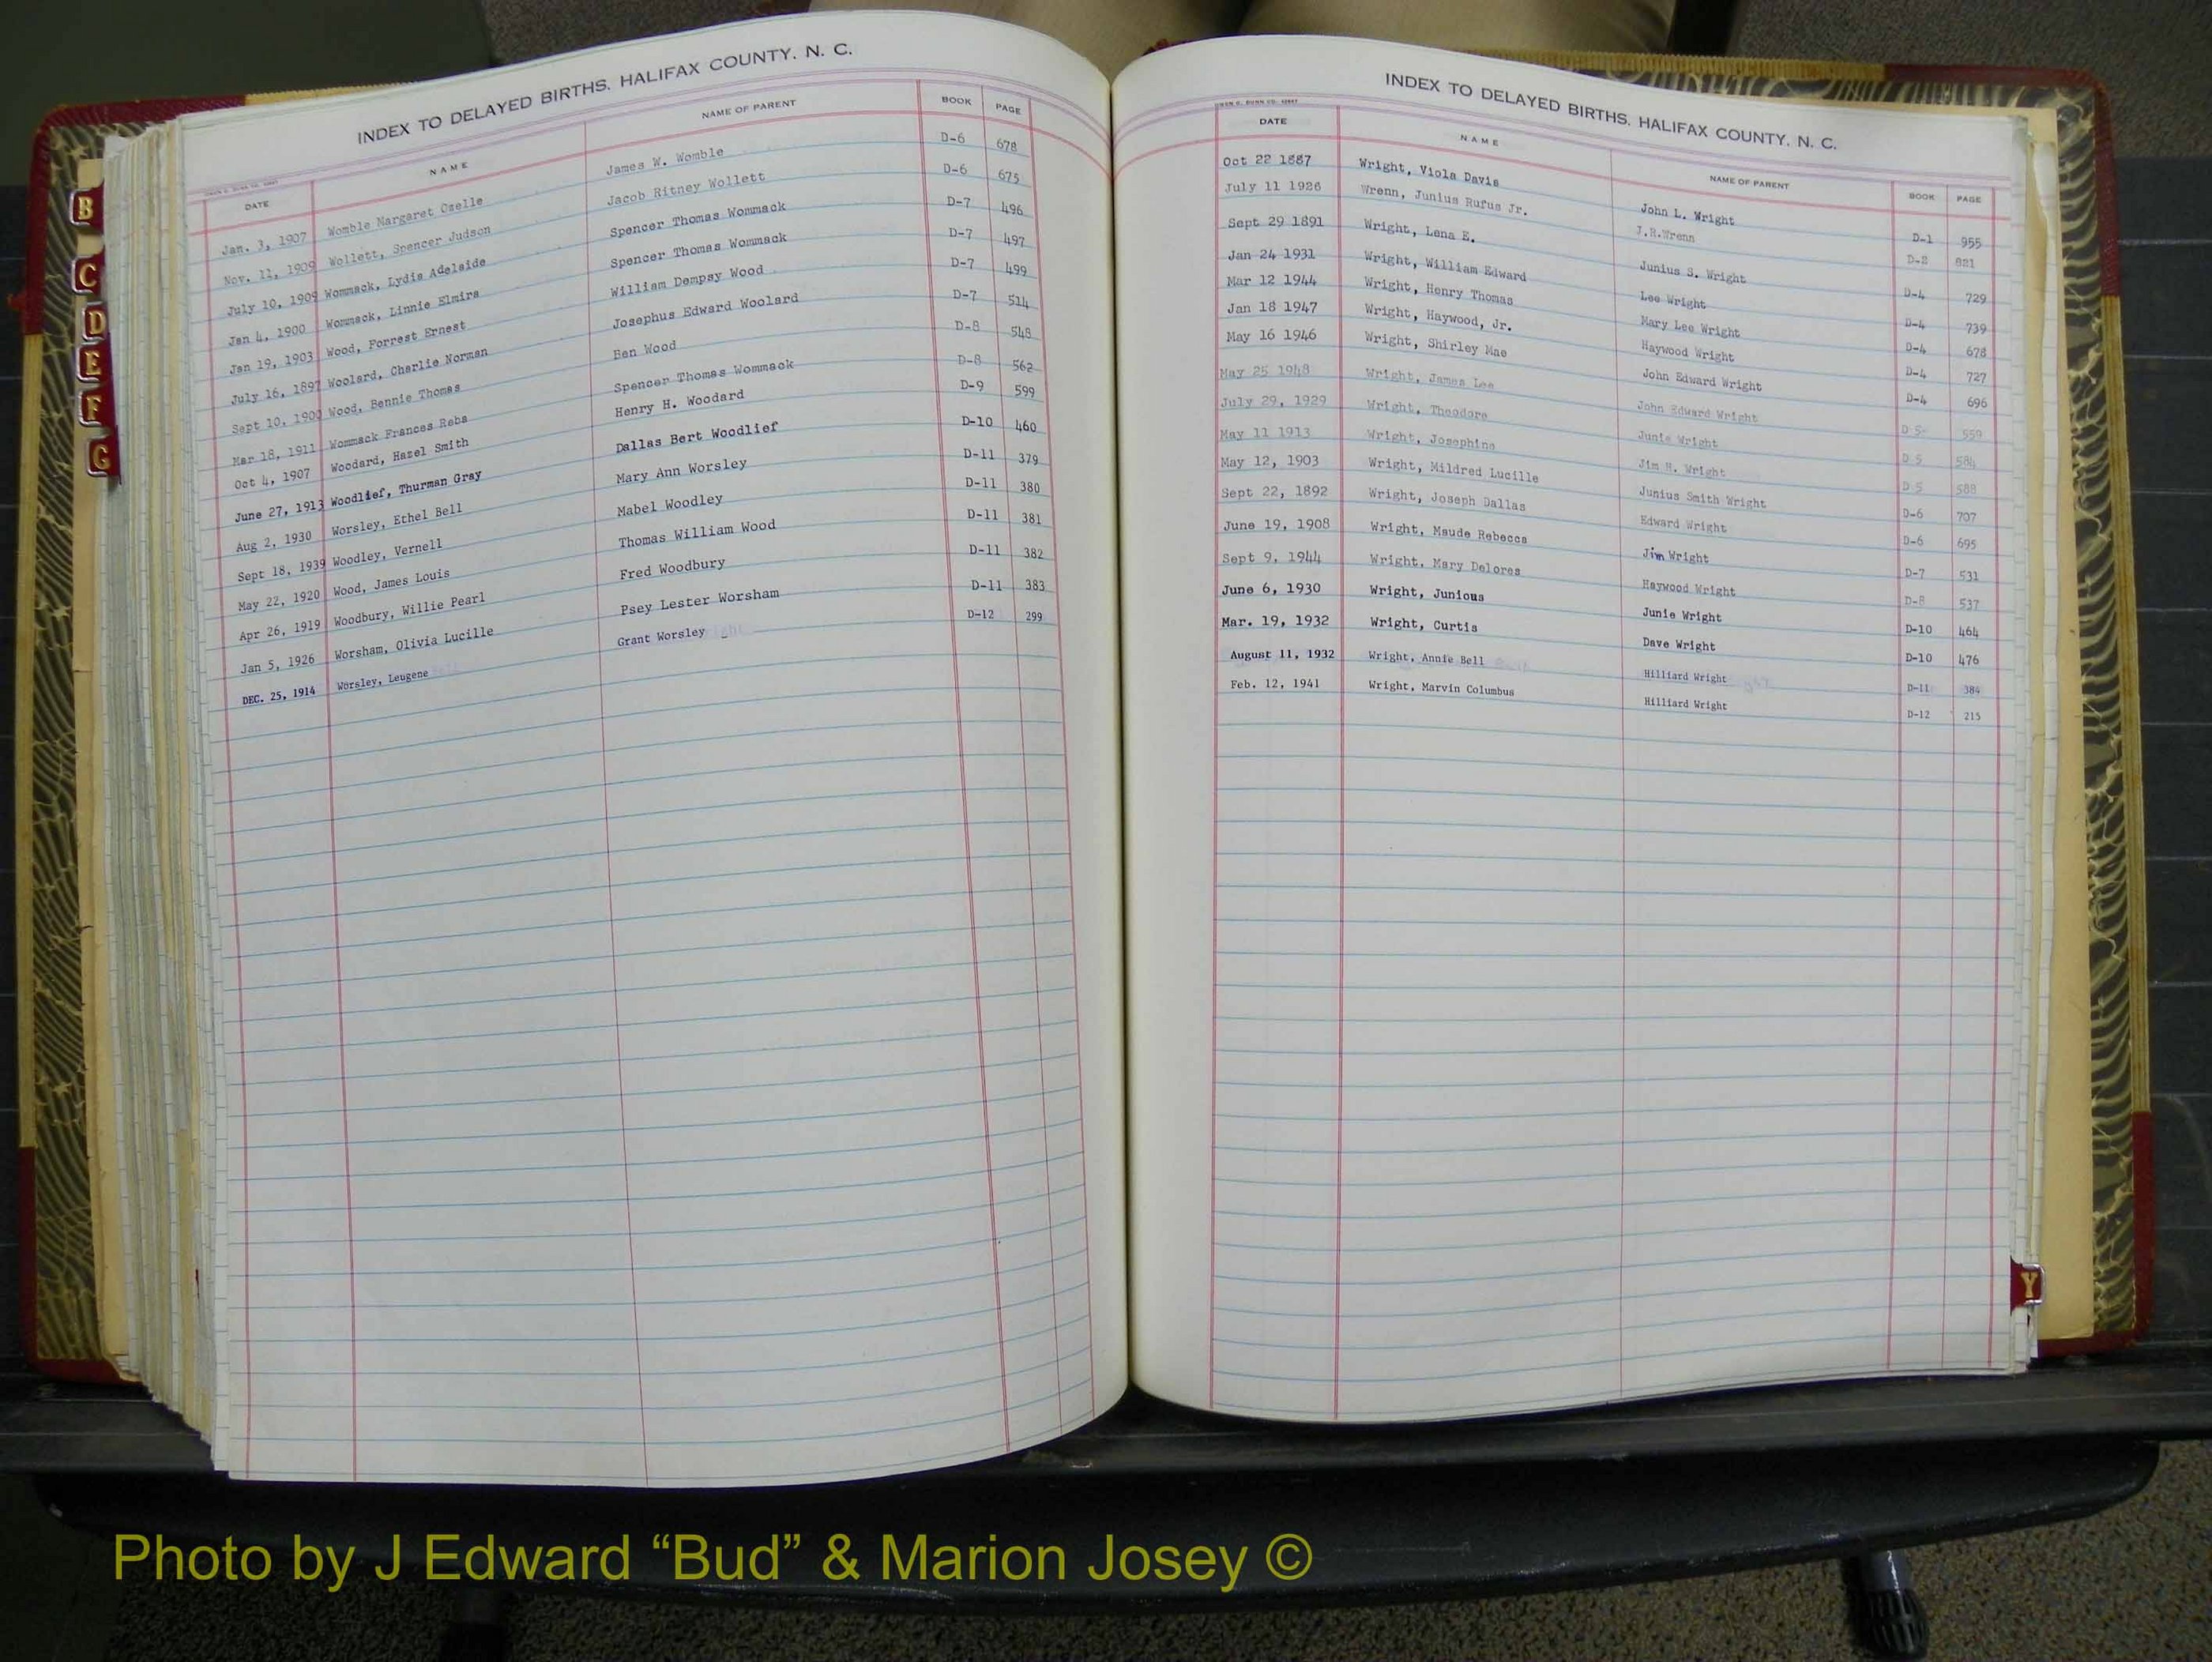 INDEX TO DELAYED BIRTHS. HALIFAX COUNTY. N. C.
DATE NAME NAME OF PARENT BOOK PAGE
Jan. 3, 1907 Womble Margaret Ozelle James W. Womble D-6 678
Nov. 11, 1909 Wollett, Spencer Judson Jacob Ritney Wollett D-6 675
July 10, 1909 Wommack, Lydia Adelaide Spencer Thomas Wommack D-7 496
Jan 4, 1900 Wommack, Linnie Elmira Spencer Thomas Wommack D-7 497
Jan 19, 1903 Wood, Forrest Ernest William Dempsy Wood D-7 499
July 16, 1897 Woolard, Charlie Norman Josephus Edward Woolard D-7 514
Sept 10, 1900 Wood, Bennie Thomas Ben Wood D-8 548
Mar 18, 1911 Wommack Frances Reba Spencer Thomas Wommack D-8 562
Oct 4, 1907 Woodard, Hazel Smith Henry H. Woodard D-9 599
June 27, 1913 Woodlief, Thurman Gray Dallas Bert Woodlief D-10 460
Aug 2, 1930 Worsley, Ethel Bell Mary Ann Worsley D-11 379
Sept 18, 1939 Woodley, Vernell Mabel Woodley D-11 380
May 22, 1920 Wood, James Louis Thomas William Wood D-11 381
Apr 26, 1919 Woodbury, Willie Pearl Fred Woodbury D-11 382
Jan 5, 1926 Worsham, Olivia Lucille Psey Lester Worsham D-11 383
DEC. 25, 1914 Worsley, Leugene Grant Worsley D-12 299
B
C
D
E
F
G
INDEX TO DELAYED BIRTHS. HALIFAX COUNTY. N. C.
DATE NAME NAME OF PARENT BOOK PAGE
Oct 22 1887 Wright, Viola Davis John L. Wright D-1 955
July 11 1926 Wrenn, Junius Rufus Jr. J.R.Wrenn D-2 821
Sept 29 1891 Wright, Lena E. Junius S. Wright D-4 729
Jan 24 1931 Wright, William Edward Lee Wright D-4 739
Mar 12 1944 Wright, Henry Thomas Mary Lee Wright D-4 678
Jan 18 1947 Wright, Haywood, Jr. Haywood Wright D-4 727
May 16 1946 Wright, Shirley Mae John Edward Wright D-4 696
May 25 1948 Wright, James Lee John Edward Wright D-5 559
July 29, 1929 Wright, Theodore Junie Wright D 5 584
May 11 1913 Wright, Josephine Jim H. Wright D 5 588
May 12, 1903 Wright, Mildred Lucille Junius Smith Wright D-6 707
Sept 22, 1892 Wright, Joseph Dallas Edward Wright D-6 695
June 19, 1908 Wright, Maude Rebecca Jim Wright D-7 531
Sept 9, 1944 Wright, Mary Delores Haywood Wright D-8 537
June 6, 1930 Wright, Junious Junie Wright D-10 464
Mar. 19, 1932 Wright, Curtis Dave Wright D-10 476
August 11, 1932 Wright, Annie Bell Hilliard Wright D-11 384
Feb. 12, 1941 Wright, Marvin Columbus Hilliard Wright D-12 215
Y
Photo by J Edward “Bud” & Marion Josey ©